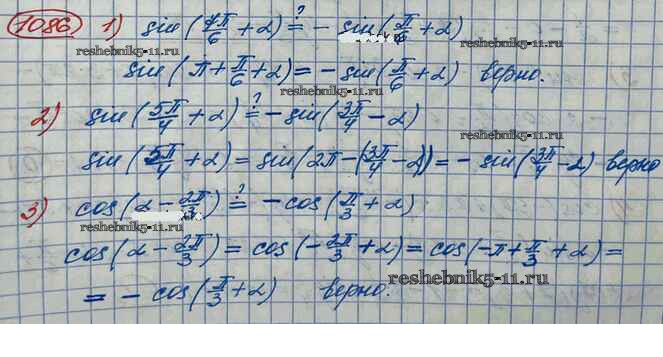 1086. 1) sin(7π/6 + α) ?= - sin(π/6 + α)
reshebnik5-11.ru
sin(π + π/6 + α) = - sin(π/6 + α) верно.
reshebnik5-11.ru
2) sin(5π/4 + α) ?= - sin(3π/4 - α)
reshebnik5-11.ru
sin(5π/4 + α) = sin(2π - (3π/4 - α)) = - sin(3π/4 - α) верно
3) cos(α - 2π/3) ?= - cos(π/3 + α)
reshebnik5-11.ru
cos(α - 2π/3) = cos(-2π/3 + α) = cos(-π + π/3 + α) =
reshebnik5-11.ru
= - cos(π/3 + α) верно.
reshebnik5-11.ru